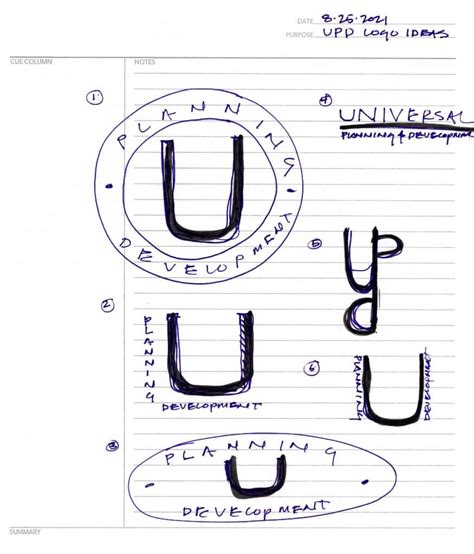 DATE 8·25·2021
PURPOSE UPD LOGO IDEAS
CUE COLUMN
NOTES
1
PLANNING
U
DEVELOPMENT
4
UNIVERSAL
PLANNING & DEVELOPMENT
5
U P D
2
PLANNING
U
DEVELOPMENT
6
PLANNING
U
DEVELOPMENT
3
PLANNING
U
DEVELOPMENT
SUMMARY